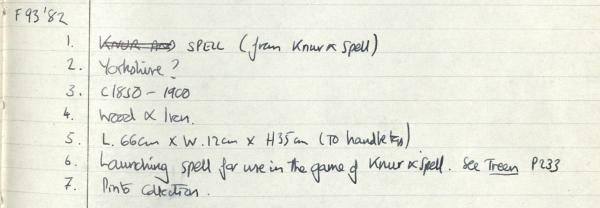 F93'82
1. KNUR AND SPELL (from Knur & Spell)
2. Yorkshire?
3. C1850 - 1900
4. Wood & Iron.
5. L. 66cm x W. 12cm x H35cm (To handle top)
6. Launching spell for use in the game of Knur & Spell. See Treen P233
7. Pinto Collection.